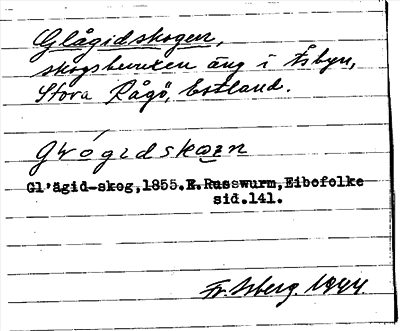 Glågidskogen,
skogsbunxen äng i Åsbyn,
Stora Rågö, Estland.
Gl'ägid-skog,1855.E.Russwurm,Eibofolke
sid.141.
Fr. Isberg. 1944